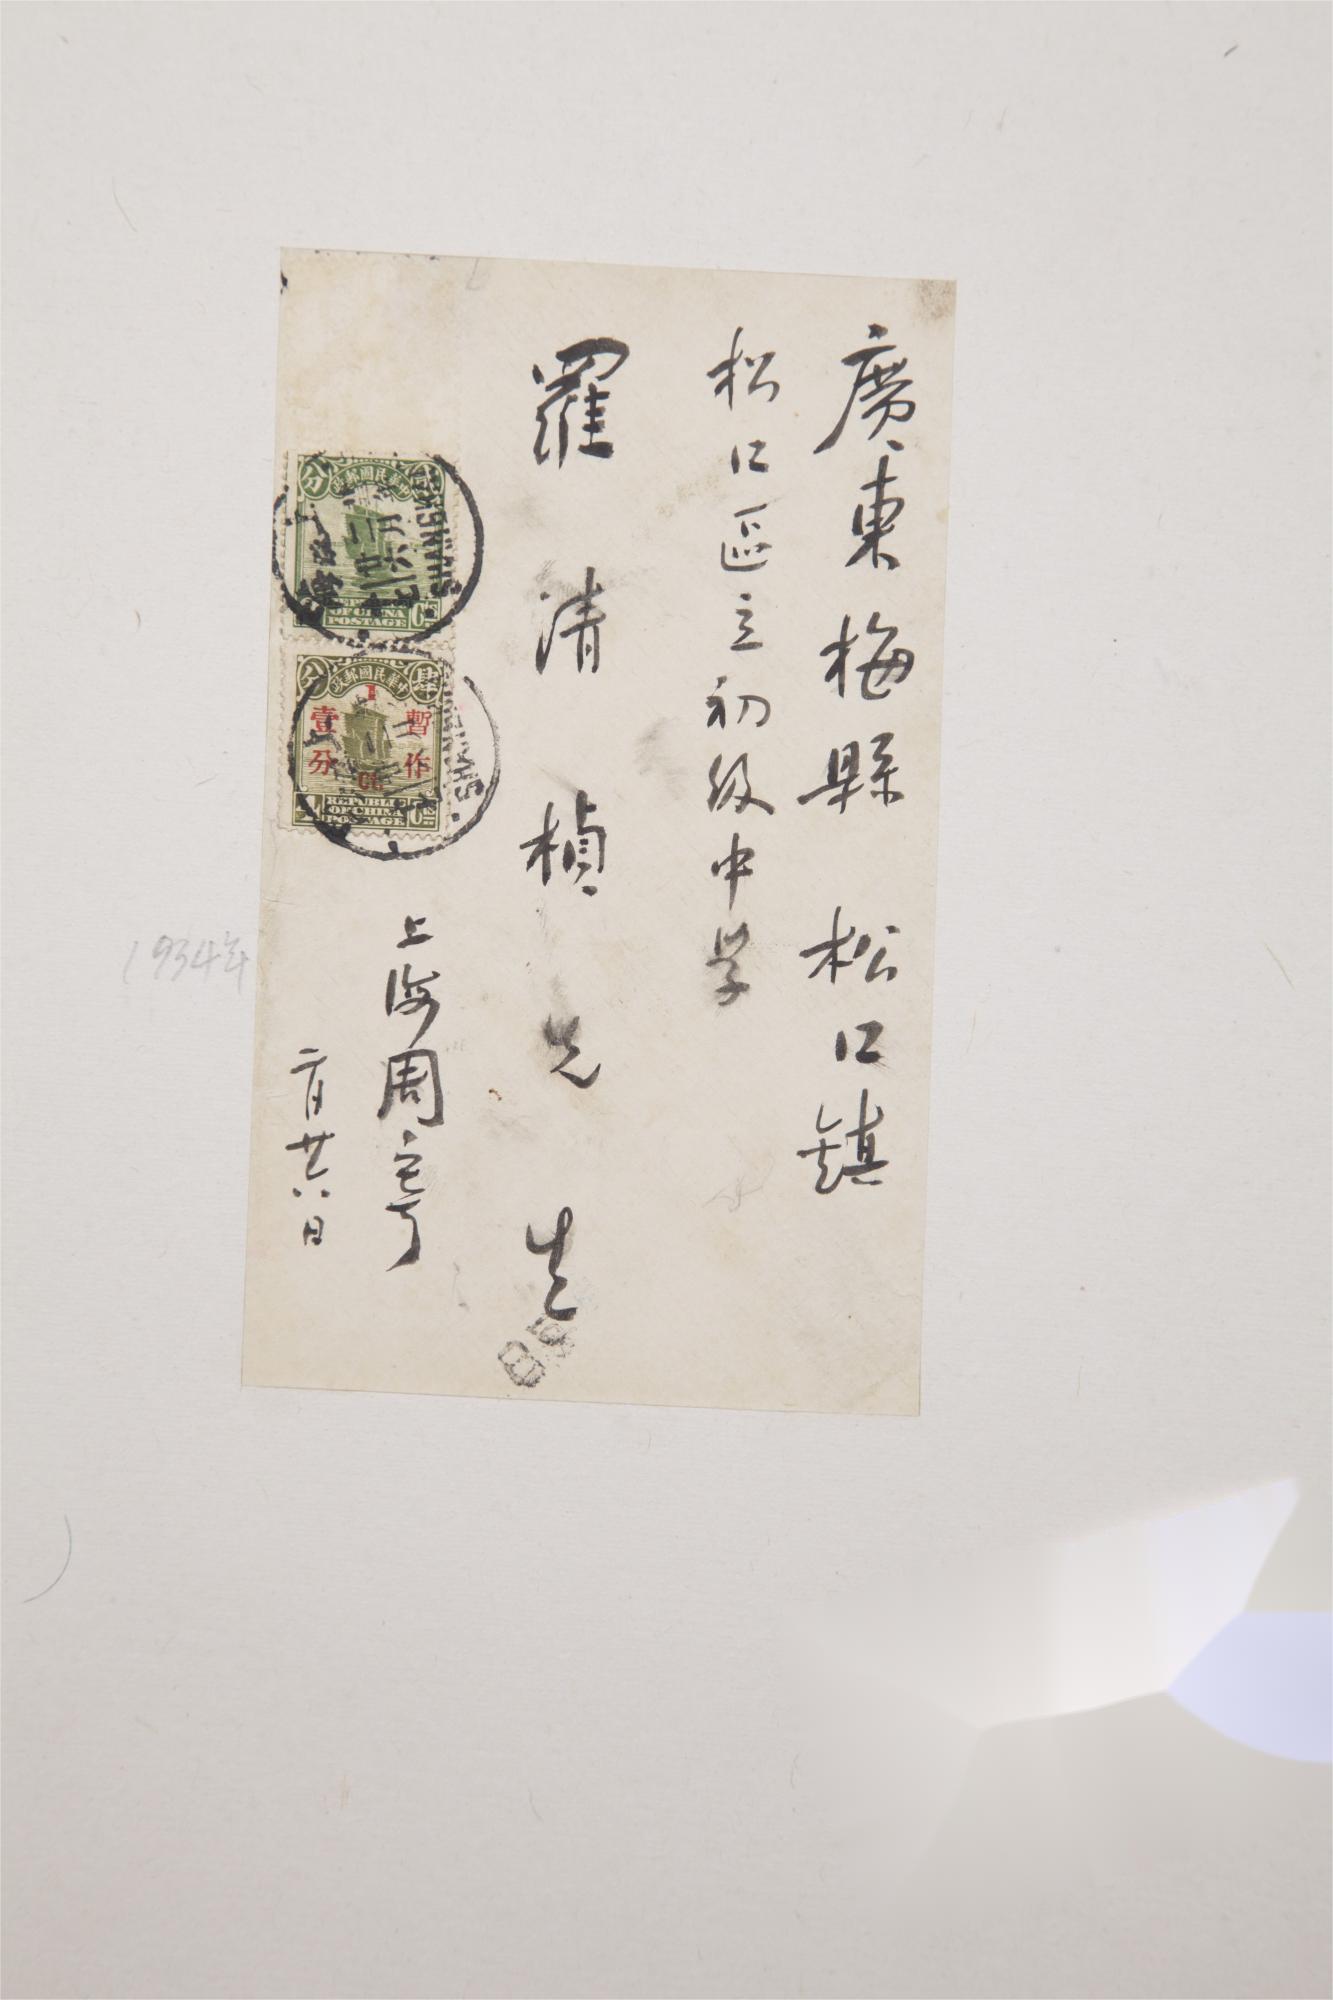 廣東梅縣松口鎮
松口區立初級中学
羅清楨先生
上海周寄
二月廿六日
1934年
中華民國郵政
分
REPUBLIC
OF CHINA
POSTAGE
SHANGHAI
上海
中華民國郵政
分 肆
1
暫作
壹分
Ct.
4 Cts
REPUBLIC
OF CHINA
POSTAGE
SHANGHAI